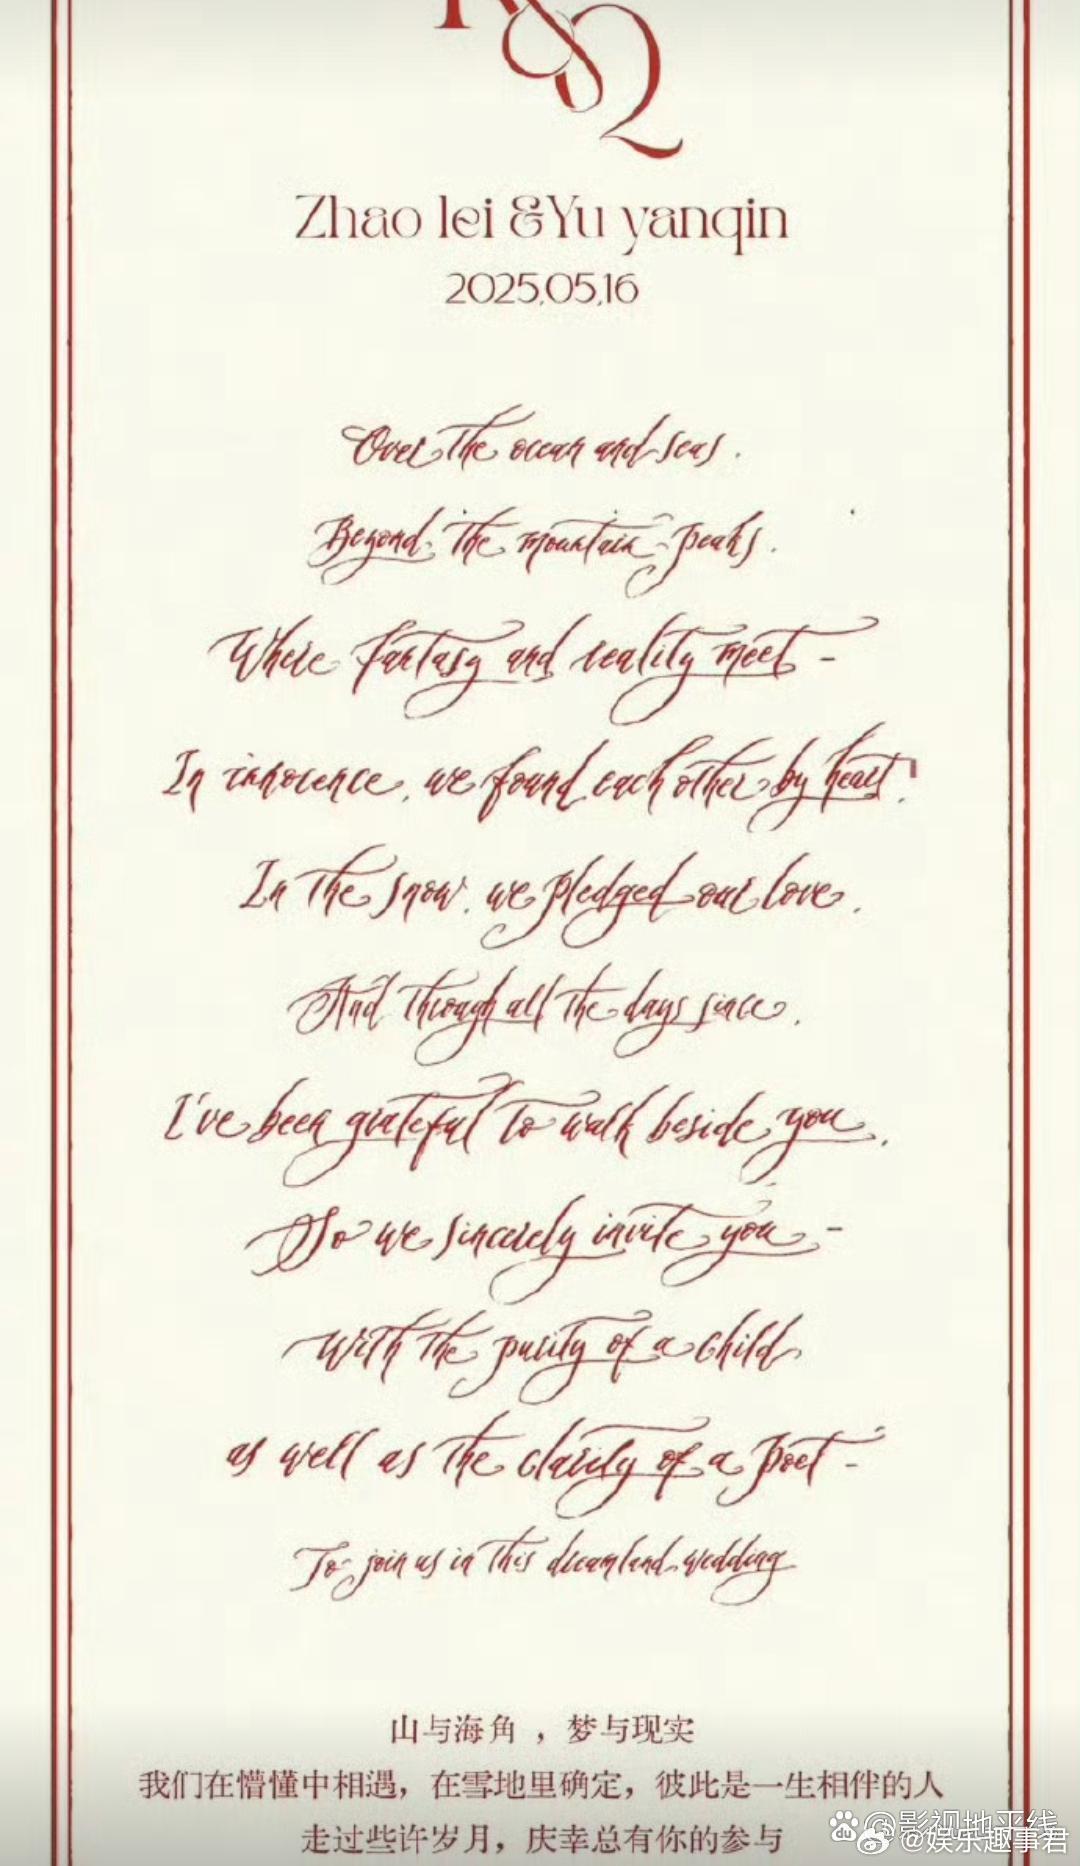 &Q
Zhao lei &Yu yanqin
2025.05.16
Over the ocean and seas.
Beyond the mountain peaks.
Where fantasy and reality meet -
In innocence, we found each other by heart,
In the snow, we pledged our love,
And through all the days since,
I've been grateful to walk beside you,
So we sincerely invite you -
With the purity of a child
as well as the clarity of a poet -
To join us in this dreamland wedding
山与海角，梦与现实
我们在懵懂中相遇，在雪地里确定，彼此是一生相伴的人
走过些许岁月，庆幸总有你的参与
@影视地平线
@娱乐趣事君